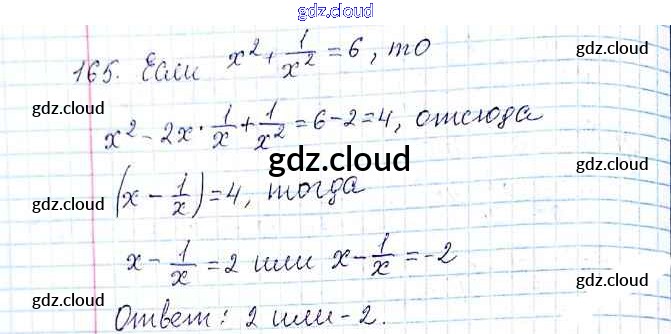 gdz.cloud
165. Если x² + 1/x² = 6, то
gdz.cloud
gdz.cloud
x² - 2x · 1/x + 1/x² = 6 - 2 = 4, отсюда
gdz.cloud
(x - 1/x) = 4, тогда
gdz.cloud
gdz.cloud
x - 1/x = 2 или x - 1/x = -2
gdz.cloud
gdz.cloud
Ответ: 2 или -2.